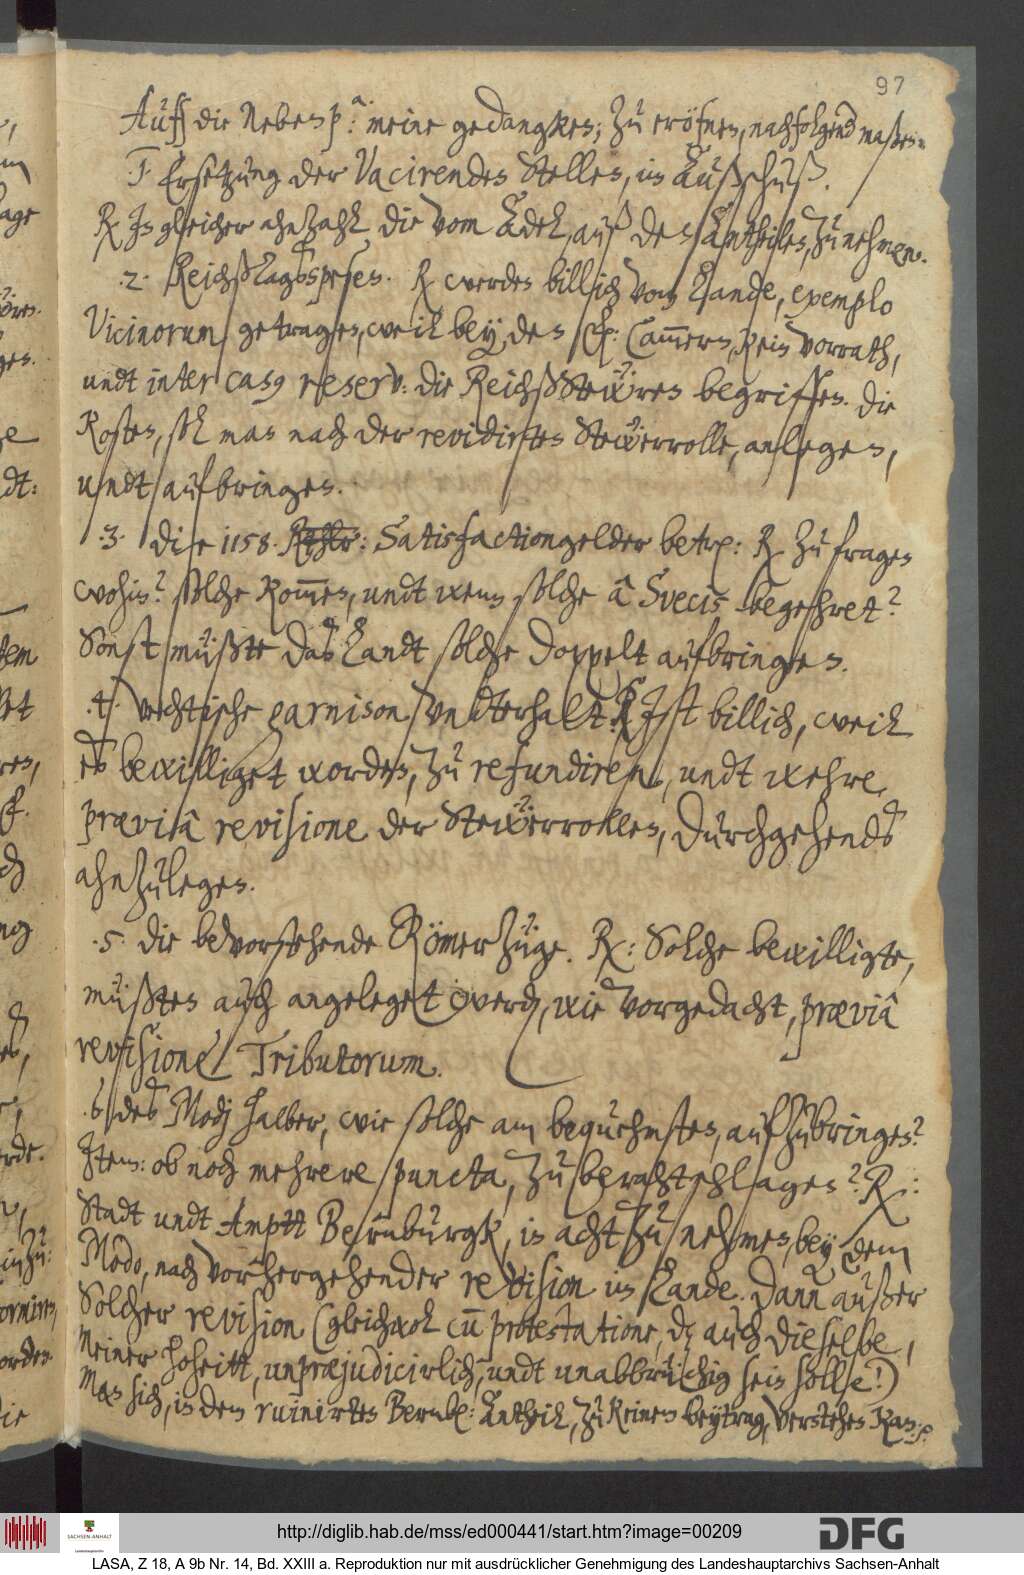 97
Auff die Neben p.a: meine gedangken, zu eröfnen, nachfolgend maßen:
1. Ersetzung der Vacirenden Stellen, im Außschuß.
R. In gleicher ahnzahl die vom Adel, auß den Antheilen, zu nehmen.
.2. Reichßtagßspesen. R. werden billich vom Lande, exemplo
Vicinorum getragen, weil bey den Cammern, kein vorrath,
undt inter casus reserv: die ReichßSteẅren begriffen. die
Kosten, sol man nach der revidirten Steẅerrolle, anlegen,
undt aufbringen.
.3. die 1158 Rthlr: Satisfactiongelder betr: R. zu fragen
wohin? solche kommen, undt wenn solche â Svecis begehret?
Sonst müßte das Landt solche doppelt aufbringen.
.4. Vechtische garnison undterhalt. R. Ist billich, weil
es bewilliget worden, zu refundiren, undt wehre,
præviâ revisione der Steẅerrollen, durchgehends
ahnzulegen.
.5. die bevorstehende Römerzüge. R: Solche bewilligte,
müßten auch angeleget werden, wie vorgedacht, præviâ
revisione Tributorum.
.6. des Modj halber, wie solche am bequehmsten, aufzubringen?
Item: ob noch mehrere puncta, zu berahtschlagen? R:
Stadt undt Ampt Bernburgk, in acht zu nehmen, bey dem
Modo, nach vorhergehender revision im Lande. Dann außer
Solcher revision (gleichwol cum protestatione, daß auch dieselbe,
meiner hoheitt, unpræjudicirlich, undt unabbrüchig sein sollse!)
Man sich, in dem ruinirten Bernb: Antheil, zu keinem beytrag, verstehen kan: p
http://diglib.hab.de/mss/ed000441/start.htm?image=00209
DFG
SACHSEN-ANHALT
LASA, Z 18, A 9b Nr. 14, Bd. XXIII a. Reproduktion nur mit ausdrücklicher Genehmigung des Landeshauptarchivs Sachsen-Anhalt